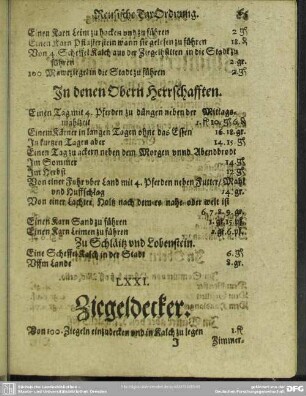 Reusische Tax Ordnung.
Einen Karn Leim zu hacken unnd zu führen 2.
Einen Karn Pflasterstein wann sie gelesen zu führen 18.
Von 4. Scheffel Kalch aus der Ziegelhütten in die Stadt zu
führen 2.gr.
100 Mawrziegel in die Stadt zu führen 2.
In denen Obern Herrschafften.
Einen Tag mit 4. Pferden zu düngen neben der Mittags
mahlzeit
Einem Kärner in langen Tagen ohne das Essen 16.18.gr.
In kurtzen Tagen aber 14.15.
Einen Tag zu ackern neben dem Morgen unnd Abendbrodt
Im Sommer 14.
Im Herbst 12.
Von einer Fuhr uber Land mit 4. Pferden neben Futter/ Mahl
und Huffschlag 14.gr.
Von einer Lachter Holtz nach dem es nahe oder weit ist
6.7.8.9.gr.
Einen Karn Sand zu führen 1.gr.
Einen Karn Leimen zu führen 2.gr.6.
Zu Schläitz und Lobenstein.
Eine Scheffel Kalch in der Stadt 6.
Uffm Lande 8.gr.
LXXI.
Ziegeldecker.
Von 100. Ziegeln einzudecken und in Kalch zu legen 1.
J Zimmer.